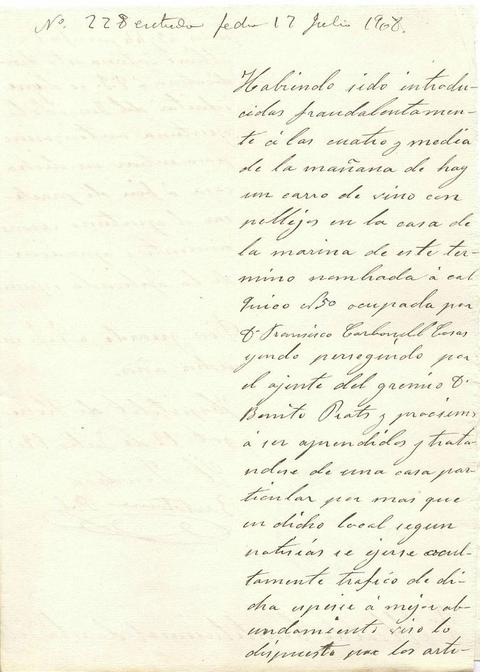 Nº. 228 entrada fecha 17 Julio 1908.
Habiendo sido introdu-
cidas fraudalentamen-
te á las cuatro y media
de la mañana de hoy
un carro de vino con
pellejos en la casa de
la marina de este ter-
mino nombrada á cal
ocupada por
Dn Francisco Carbonell Cosas
yendo perseguido por
el ajente del gremio Dn
Benito Prats y procsimo
á ser aprendidos y trata-
ndose de una casa par-
ticular por mas que
en dicho local segun
notisias se ejerse ocul-
tamente trafico de di-
cha espisie á mejor ab-
undamiento viso lo
dispuesto por los arti-